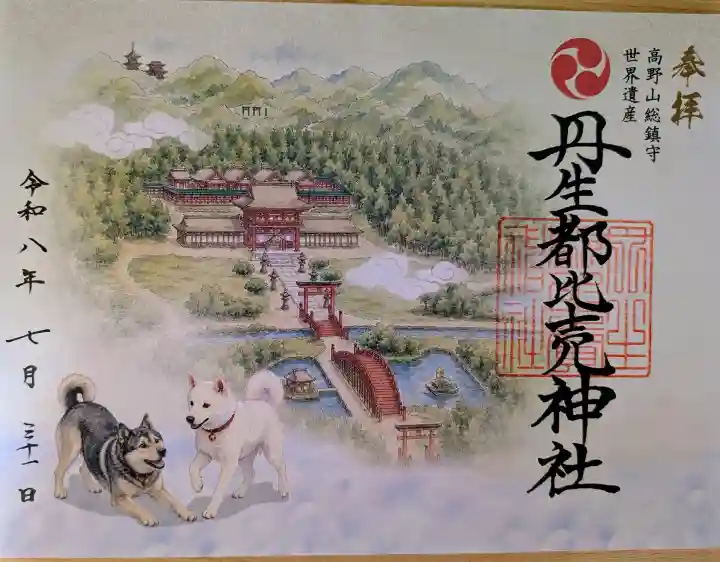 奉拝
高野山総鎮守
世界遺産
丹生都比売神社
令和八年 七月 三十一日